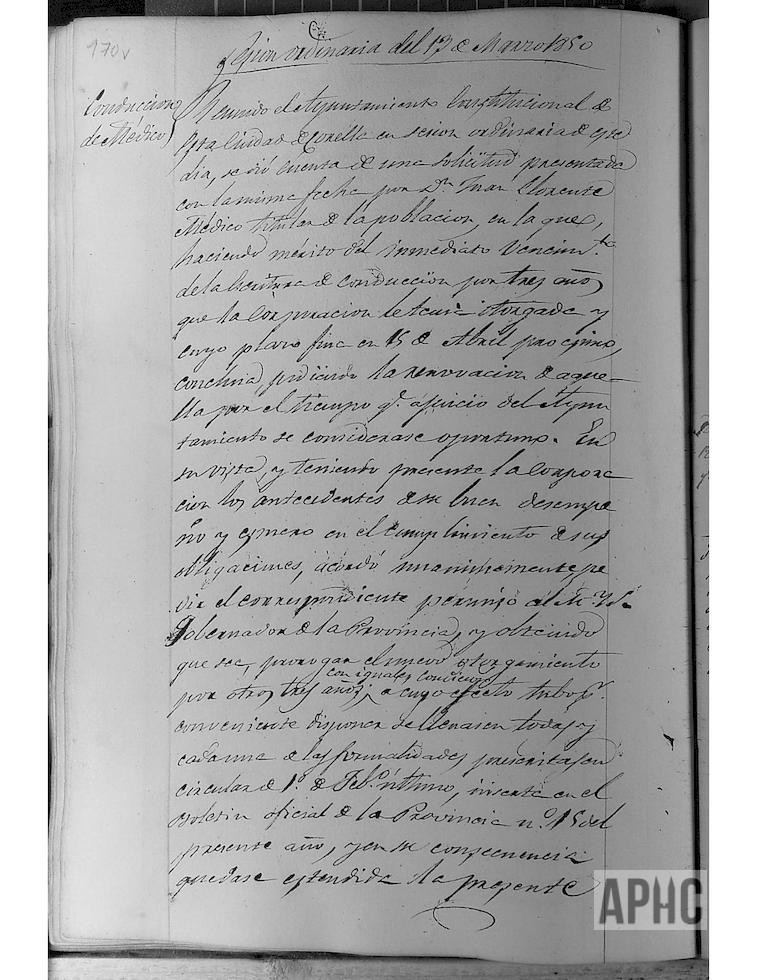 170v
Sesion ordinaria del 13 de Marzo 1850
Conduccion
de Médico
Reunido el Ayuntamiento Constitucional de
esta Ciudad de Corella en sesion ordinaria de este
dia, se dió cuenta de una solicitud presentada
con la misma fecha por Dn. Juan Llorente
Médico titular de la poblacion, en la que,
haciendo mérito del inmediato vencimto.
de la Escritura de conduccion por tres años,
que la Corporacion le tenia otorgada y
cuyo plazo fina en 15 de Abril procsimo,
concluia pidiendo la renovacion de aque-
lla por el tiempo q.e a juicio del Ayun
tamiento se considerase oportuno. En
su vista, y teniendo presente la Corpora
cion los antecedentes de su buen desempe
ño y esmero en el cumplimiento de sus
obligaciones, acordó unanimemente pe
dir el correspondiente permiso al M. Y. S.
Gobernador de la Provincia, y obtenido
que sea, prorogar el nuevo otorgamiento
con iguales condiciones
por otros tres años; a cuyo efecto tubo pr.
conveniente disponer se llenasen todas y
cada una de las formalidades prescritas en
circular de 1º de Feb.o último, inserta en el
Boletin oficial de la Provincia nº 15 del
presente año, y en su consecuencia
quedase estendida la presente
APHC